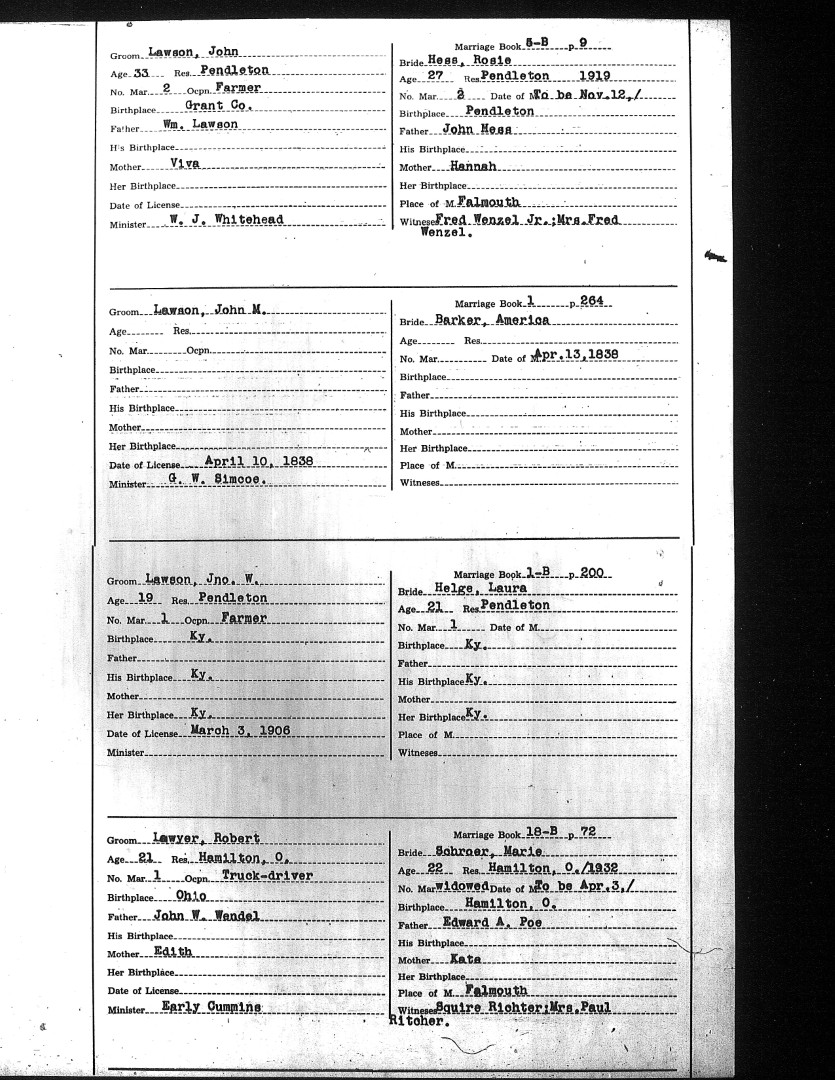 Groom Lawson, John
Age 33 Res. Pendleton
No. Mar. 2 Ocpn. Farmer
Birthplace Grant Co.
Father Wm. Lawson
His Birthplace
Mother Viva
Her Birthplace
Date of License
Minister W. J. Whitehead
Marriage Book 5-B p. 9
Bride Hess, Rosie
Age 27 Res. Pendleton 1919
No. Mar. 2 Date of M. To be Nov.12,/
Birthplace Pendleton
Father John Hess
His Birthplace
Mother Hannah
Her Birthplace
Place of M. Falmouth
Witneses Fred Wenzel Jr.;Mrs.Fred
Wenzel.
Groom Lawson, John M.
Age Res.
No. Mar. Ocpn.
Birthplace
Father
His Birthplace
Mother
Her Birthplace
Date of License April 10, 1838
Minister G. W. Simcoe.
Marriage Book 1 p. 264
Bride Barker, America
Age Res.
No. Mar. Date of M. Apr.13,1838
Birthplace
Father
His Birthplace
Mother
Her Birthplace
Place of M.
Witneses
Groom Lawson, Jno. W.
Age 19 Res. Pendleton
No. Mar. 1 Ocpn. Farmer
Birthplace Ky.
Father
His Birthplace Ky.
Mother
Her Birthplace Ky.
Date of License March 3, 1906
Minister
Marriage Book 1-B p. 200
Bride Helge, Laura
Age 21 Res. Pendleton
No. Mar. 1 Date of M.
Birthplace Ky.
Father
His Birthplace Ky.
Mother
Her Birthplace Ky.
Place of M.
Witneses
Groom Lawyer, Robert
Age 21 Res. Hamilton, O.
No. Mar. 1 Ocpn. Truck-driver
Birthplace Ohio
Father John W. Wendel
His Birthplace
Mother Edith
Her Birthplace
Date of License
Minister Early Cummins
Marriage Book 18-B p. 72
Bride Schroer, Marie
Age 22 Res. Hamilton, O./1932
No. Mar. widowed Date of M. To be Apr.3,/
Birthplace Hamilton, O.
Father Edward A. Poe
His Birthplace
Mother Kate
Her Birthplace
Place of M. Falmouth
Witneses Squire Richter;Mrs.Paul
Ritcher.